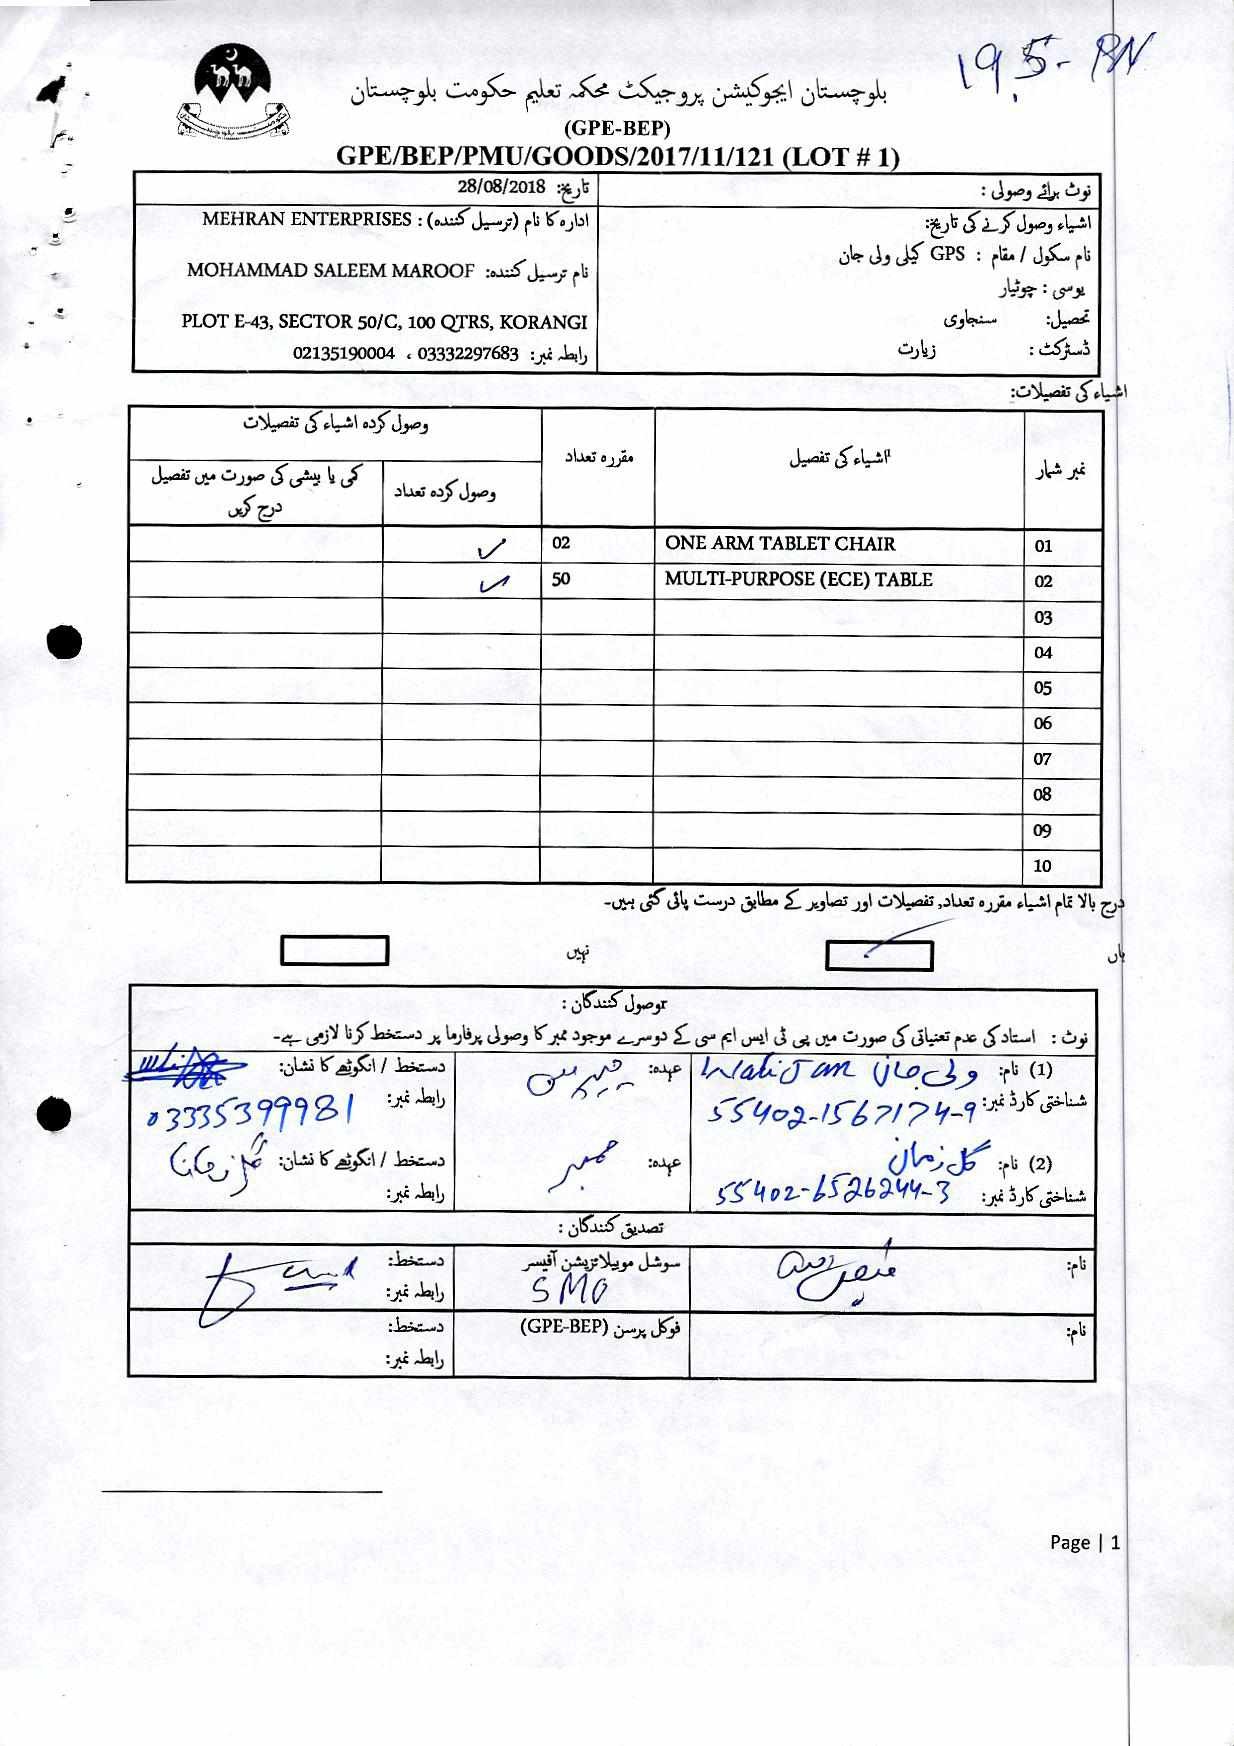 195-RN
بلوچستان ایجوکیشن پروجیکٹ محکمہ تعلیم حکومت بلوچستان
(GPE-BEP)
GPE/BEP/PMU/GOODS/2017/11/121 (LOT # 1)
نوٹ برائے وصولی :
تاریخ: 28/08/2018
اشیاء وصول کرنے کی تاریخ:
نام سکول / مقام : GPS کیلی ولی جان
یوسی : چوٹیار
تحصیل: سنجاوی
ڈسٹرکٹ : زیارت
ادارہ کا نام (ترسیل کنندہ) : MEHRAN ENTERPRISES
نام ترسیل کنندہ: MOHAMMAD SALEEM MAROOF
PLOT E-43, SECTOR 50/C, 100 QTRS, KORANGI
رابطہ نمبر: 03332297683 ، 02135190004
اشیاء کی تفصیلات:
نمبر شمار اشیاء کی تفصیل مقررہ تعداد وصول کردہ اشیاء کی تفصیلات
وصول کردہ تعداد کمی یا بیشی کی صورت میں تفصیل درج کریں
01 ONE ARM TABLET CHAIR 02 ✓
02 MULTI-PURPOSE (ECE) TABLE 50 ✓
03
04
05
06
07
08
09
10
درج بالا تمام اشیاء مقررہ تعداد, تفصیلات اور تصاویر کے مطابق درست پائی گئی ہیں۔
ہاں ✓ نہیں
وصول کنندگان :
نوٹ : استاد کی عدم تعنیاتی کی صورت میں پی ٹی ایس ایم سی کے دوسرے موجود ممبر کا وصولی پرفارما پر دستخط کرنا لازمی ہے۔
(1) نام: ولی جان Wali Jan عہدہ: چیئرمین دستخط / انگوٹھے کا نشان:
شناختی کارڈ نمبر: 55402-1567174-9 رابطہ نمبر: 03335399981
(2) نام: گل زمان عہدہ: ممبر دستخط / انگوٹھے کا نشان: گل زمان
شناختی کارڈ نمبر: 55402-6526244-3 رابطہ نمبر:
تصدیق کنندگان :
نام: سوشل موبیلائزیشن آفیسر دستخط:
SMO رابطہ نمبر:
نام: فوکل پرسن (GPE-BEP) دستخط:
رابطہ نمبر:
Page | 1